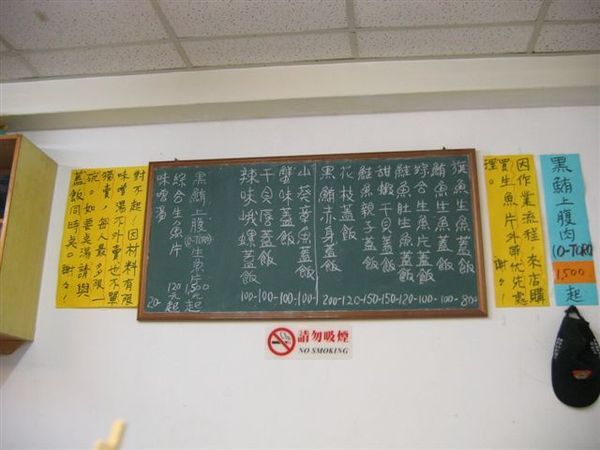 黑鮪上腹肉
(O-TORO)
1,500
起
因作業流程,來店購
買生魚片外帶優先處
理。謝々!
旗魚生魚蓋飯 80-
鮪魚生魚蓋飯 100-
綜合生魚片蓋飯 100-
鮭魚肚生魚蓋飯 120-
甜蝦干貝蓋飯 150-
鮭魚親子蓋飯 150-
花枝蓋飯 120-
黑鮪赤身蓋飯 200-
山葵章魚蓋飯 100-
蟹味蓋飯 100-
干貝唇蓋飯 100-
辣味峨螺蓋飯 100-
黑鮪上腹(O-TORO)生魚片 1500元起
綜合生魚片 120元起
味噌湯 20-
對不起!因材料有限
味噌湯不外賣也不單
獨賣,每人最多限一
碗。如要吳湯請與
蓋飯同時點。謝々!
請勿吸煙
NO SMOKING